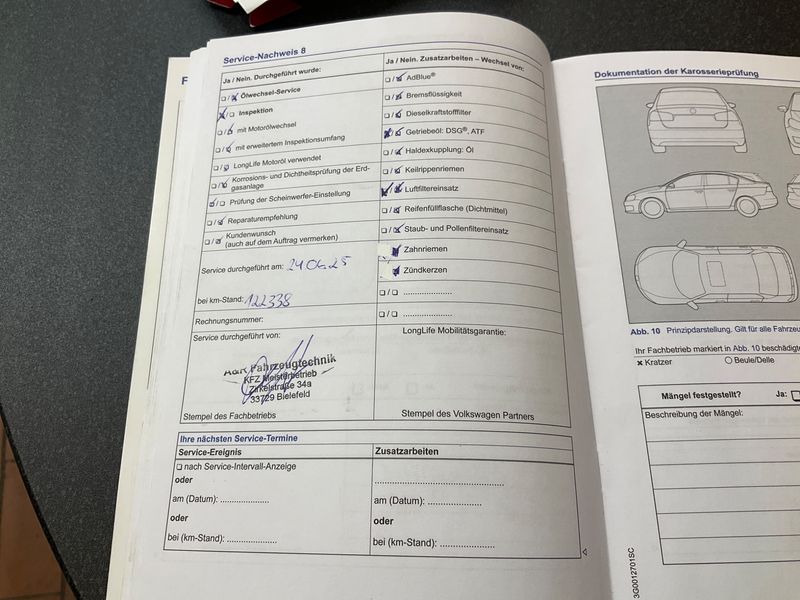 Service-Nachweis 8
Ja / Nein. Durchgeführt wurde:
Ölwechsel-Service
Inspektion
mit Motorölwechsel
mit erweitertem Inspektionsumfang
LongLife Motoröl verwendet
Korrosions- und Dichtheitsprüfung der Erd-
gasanlage
Prüfung der Scheinwerfer-Einstellung
Reparaturempfehlung
Kundenwunsch
(auch auf dem Auftrag vermerken)
Service durchgeführt am: 24.06.25
bei km-Stand: 122338
Rechnungsnummer:
Service durchgeführt von:
Fahrzeugtechnik
KFZ Meisterbetrieb
Zirkelstraße 34a
33729 Bielefeld
Stempel des Fachbetriebs
Ja / Nein. Zusatzarbeiten – Wechsel von:
AdBlue®
Bremsflüssigkeit
Dieselkraftstofffilter
Getriebeöl: DSG®, ATF
Haldexkupplung: Öl
Keilrippenriemen
Luftfiltereinsatz
Reifenfüllflasche (Dichtmittel)
Staub- und Pollenfiltereinsatz
Zahnriemen
Zündkerzen
LongLife Mobilitätsgarantie:
Stempel des Volkswagen Partners
Ihre nächsten Service-Termine
Service-Ereignis
nach Service-Intervall-Anzeige
oder
am (Datum): .....................
oder
bei (km-Stand): .....................
Zusatzarbeiten
am (Datum): .....................
oder
bei (km-Stand): .....................
Dokumentation der Karosserieprüfung
Abb. 10 Prinzipdarstellung. Gilt für alle
Ihr Fachbetrieb markiert in Abb. 10
Kratzer
Beule/Delle
Mängel festgestellt? Ja:
Beschreibung der Mängel:
3G0012701SC